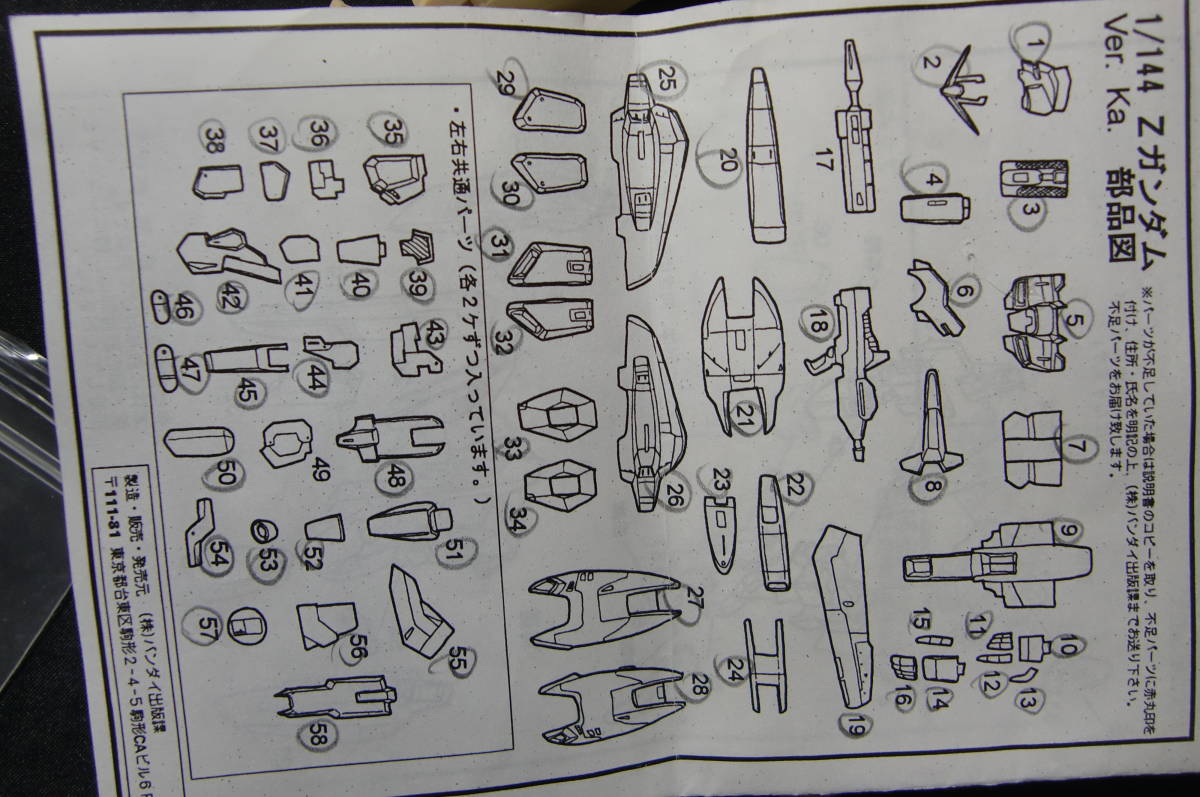 1/144 Zガンダム
Ver. Ka. 部品図
※パーツが不足していた場合は説明書のコピーを取り、不足パーツに赤丸印を
付け、住所・氏名を明記の上、(株)バンダイ出版課までお送り下さい。
不足パーツをお届け致します。
1
2
3
4
5
6
7
8
9
10
11
12
13
14
15
16
17
18
19
20
21
22
23
24
25
26
27
28
29
30
31
32
33
34
・左右共通パーツ (各2ケずつ入っています。)
35
36
37
38
39
40
41
42
43
44
45
46
47
48
49
50
51
52
53
54
55
56
57
58
製造・販売・発売元 (株)バンダイ出版課
〒111-81 東京都台東区駒形2-4-5駒形CAビル6F